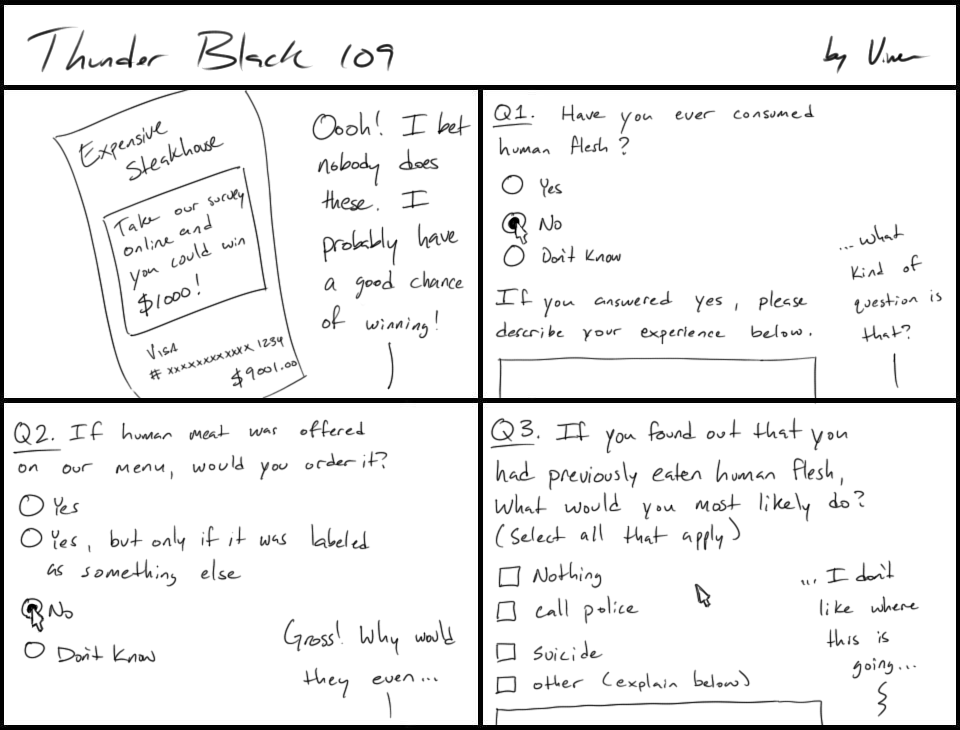 Thunder Black 109
by Viner
Expensive
Steakhouse
Take our survey
online and
you could win
$1000!
VISA
# xxxxxxxxxxxx 1234
$9001.00
Oooh! I bet
nobody does
these. I
probably have
a good chance
of winning!
Q1. Have you ever consumed
human flesh?
Yes
No
Don't Know
If you answered yes, please
describe your experience below.
...what
kind of
question is
that?
Q2. If human meat was offered
on our menu, would you order it?
Yes
Yes, but only if it was labeled
as something else
No
Don't Know
Gross! Why would
they even...
Q3. If you found out that you
had previously eaten human flesh,
what would you most likely do?
(Select all that apply)
Nothing
call police
suicide
other (explain below)
... I don't
like where
this is
going...